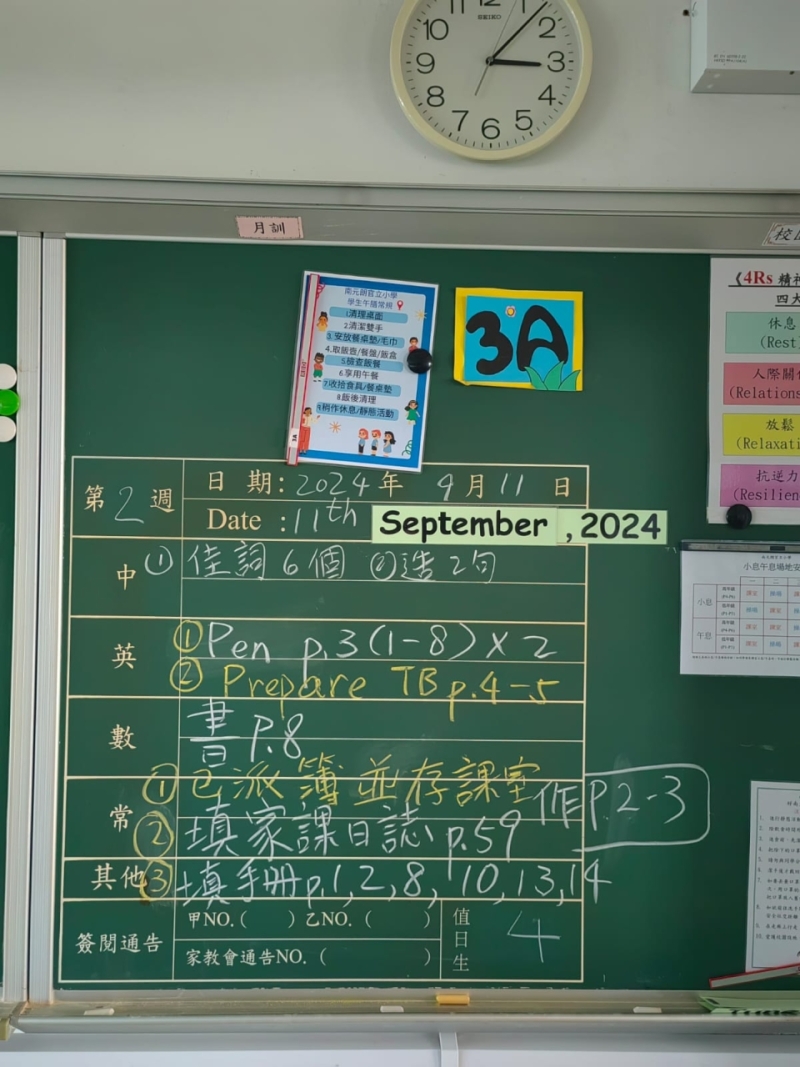 11 1
10 2
SEIKO
9 3
8 4
7 6 5
月訓
南元朗官立小學
學生午膳常規
1.清理桌面
2.清潔雙手
3.安放餐桌墊/毛巾
4.取飯壺/餐盤/飯盒
5.檢查飯餐
6.享用午餐
7.收拾食具/餐桌墊
8.飯後清理
9.稍作休息/靜態活動
3A
《4Rs 精神
四大
休息
(Rest
人際關
(Relations
放鬆
(Relaxati
抗逆力
(Resilien
小息午息場地安
小息
午息
第2週
日 期:2024年 9月11日
Date :11th September , 2024
中 ① 佳詞6個 ②造2句
英 ① Pen p.3(1-8)×2
② Prepare TB p.4-5
數 書 P.8
作P.2-3
常 ① 已派簿並存課室
② 填家課日誌 p.59
其他 ③ 填手冊p.1,2,8,10,13,14
簽閱通告 甲NO.( ) 乙NO.( )
家教會通告NO.( )
值日生 4